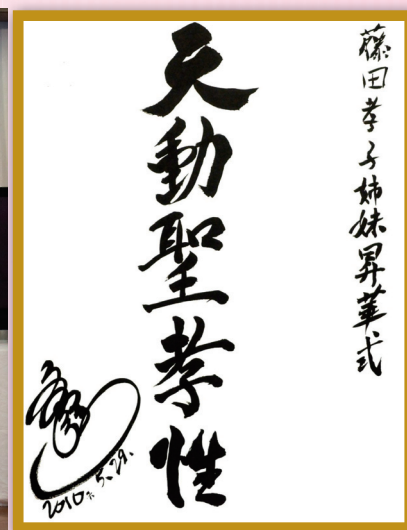 藤田孝子姉妹昇華式
天動聖孝性
2010. 5. 29.